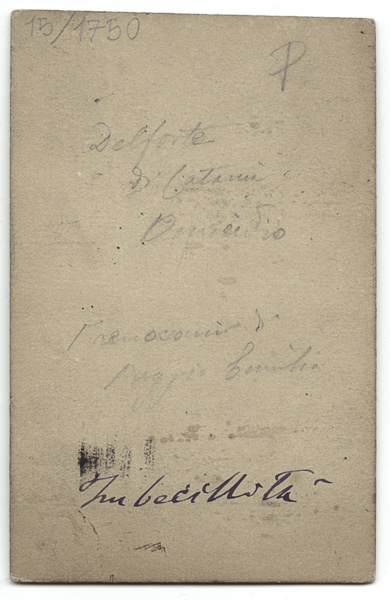 15/1750
P
Delforte
di Catania
Omicidio
Frenocomio di
Reggio Emilia
Imbecillità